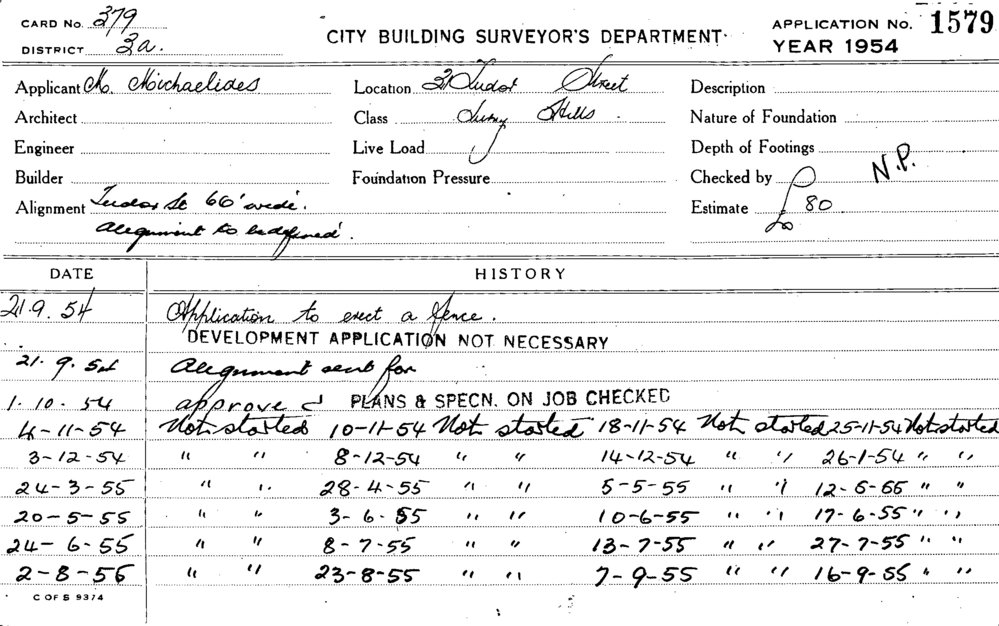 CARD No. 379
DISTRICT 3a.
CITY BUILDING SURVEYOR'S DEPARTMENT
APPLICATION No. 1579
YEAR 1954
Applicant M. Michaelides
Location 31 Tudor Street
Description
Architect
Class Surry Hills
Nature of Foundation
Engineer
Live Load
Depth of Footings
Builder
Foundation Pressure
Checked by N.P.
Alignment Tudor St 66' wide.
Estimate £ 80
Alignment to be defined.
DATE HISTORY
21.9.54 Application to erect a fence.
DEVELOPMENT APPLICATION NOT NECESSARY
21.9.54 Alignment sent for
1.10.54 approved PLANS & SPECN. ON JOB CHECKED
4-11-54 Not started 10-11-54 Not started 18-11-54 Not started 25-11-54 Not started
3-12-54 " " 8-12-54 " " 14-12-54 " " 26-1-54 " "
24-3-55 " " 28-4-55 " " 5-5-55 " " 12-5-55 " "
20-5-55 " " 3-6-55 " " 10-6-55 " " 17-6-55 " "
24-6-55 " " 8-7-55 " " 13-7-55 " " 27-7-55 " "
2-8-55 " " 23-8-55 " " 7-9-55 " " 16-9-55 " "
C OF S 9374